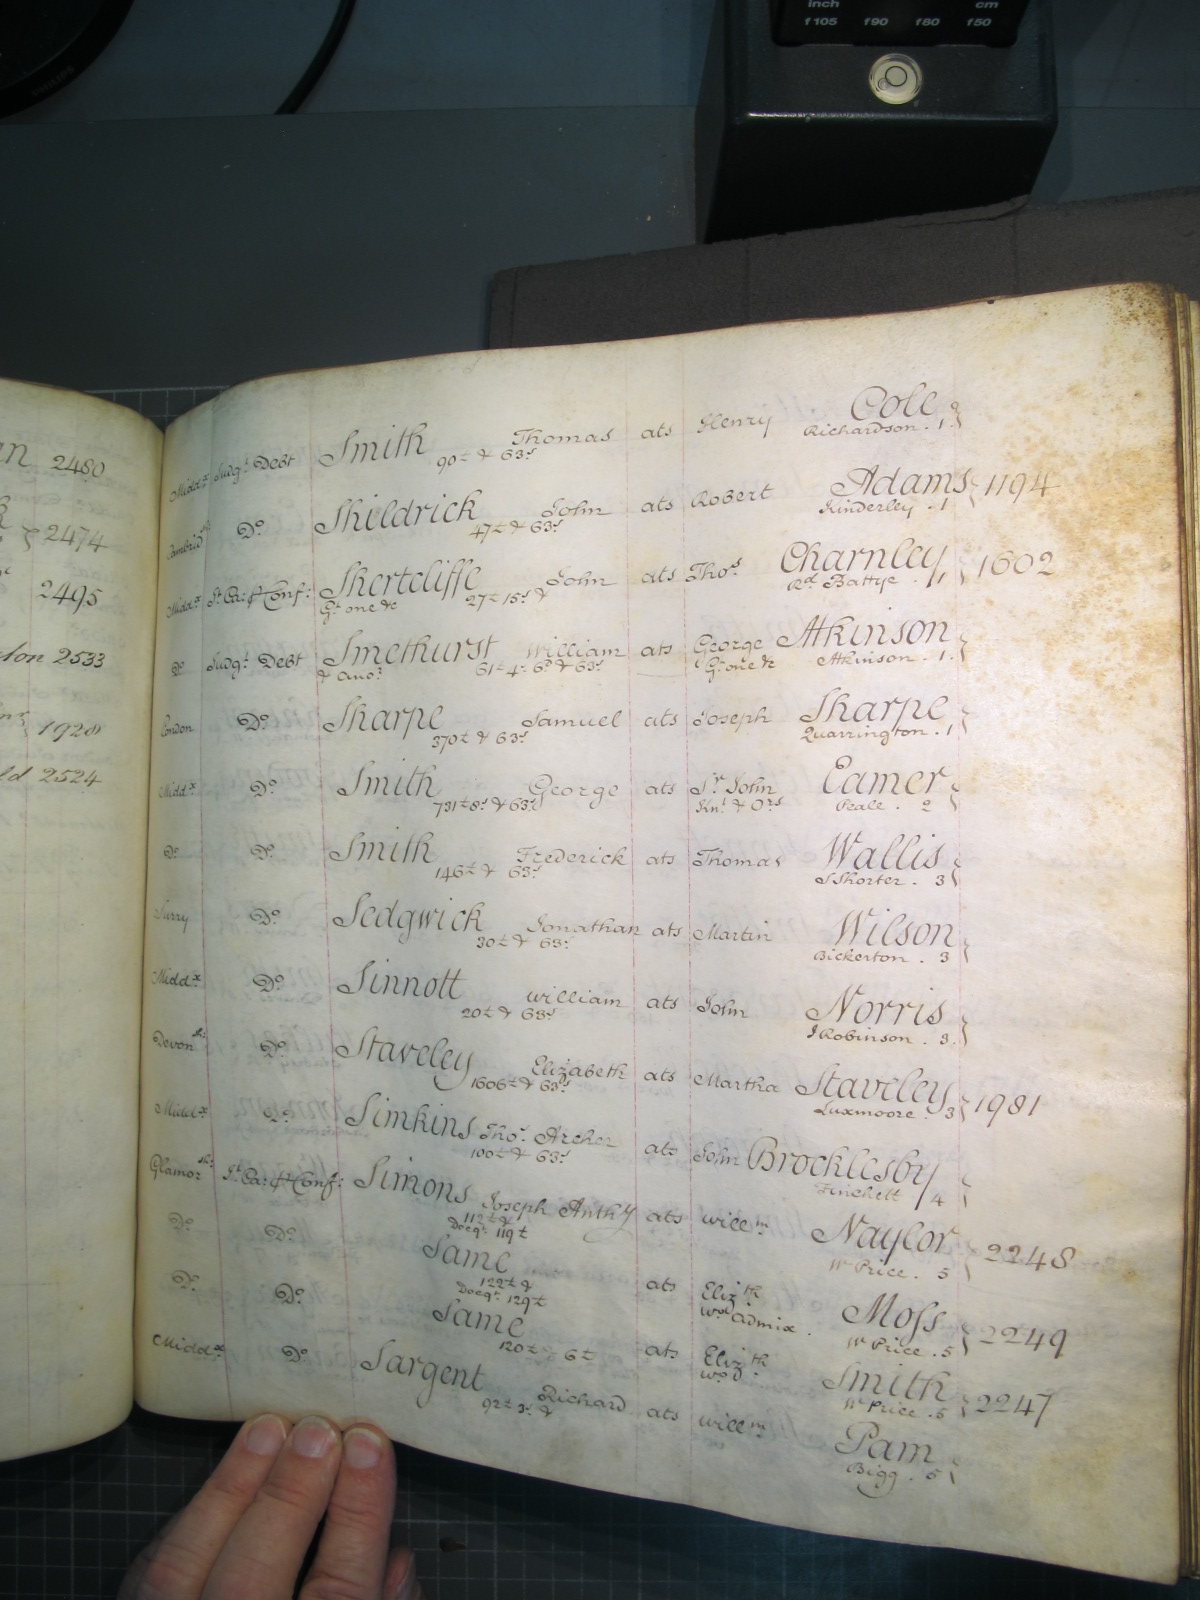 inch cm
f105 f90 f80 f50
PHILIPS
2480
2474
2495
2533
1928
2524
Midd:x Judg:t Debt Smith Thomas ats Henry Cole
90£ & 63s Richardson . 1
Do Shildrick John ats Robert Adams 1194
47£ & 63s Kinderley . 1
Midd:x St. Ca: & Conf: Shertcliffe John ats Thos. Charnley 1602
Gt one &c 27£ 15s & Rd Battye . 1
Do Judg:t Debt Smethurst William ats George Atkinson
& ano:r 61£ 4s 6d & 63s Gt one &c Atkinson . 1
London Do Sharpe Samuel ats Joseph Sharpe
370£ & 63s Quarrington . 1
Midd:x Do Smith George ats Sr John Eamer
731£ 8s & 63s Knt & Ors Peale . 2
Do Do Smith Frederick ats Thomas Wallis
146£ & 63s S Shorter . 3
Surry Do Sedgwick Jonathan ats Martin Wilson
30£ & 63s Bickerton . 3
Midd:x Do Sinnott William ats John Norris
20£ & 63s J Robinson . 3
Devonsh: Do Staveley Elizabeth ats Martha Staveley 1981
1606£ & 63s Luxmoore . 3
Midd:x Do Simkins Thos. Archer ats John Brocklesby
100£ & 63s Finchett 4
Glamorsh: St. Ca: & Conf: Simons Joseph Anthy ats Willm Naylor 2248
112£ & W Price . 5
Docqt 119£
Do Do Same ats Elizth Moss 2249
122£ & wd Admix . W Price . 5
Docqt 129£
Do Do Same ats Elizth Smith 2247
120£ 6£ wd W Price . 5
Midd:x Do Sargent Richard ats Willm Pam
92£ 3s & Bigg . 5